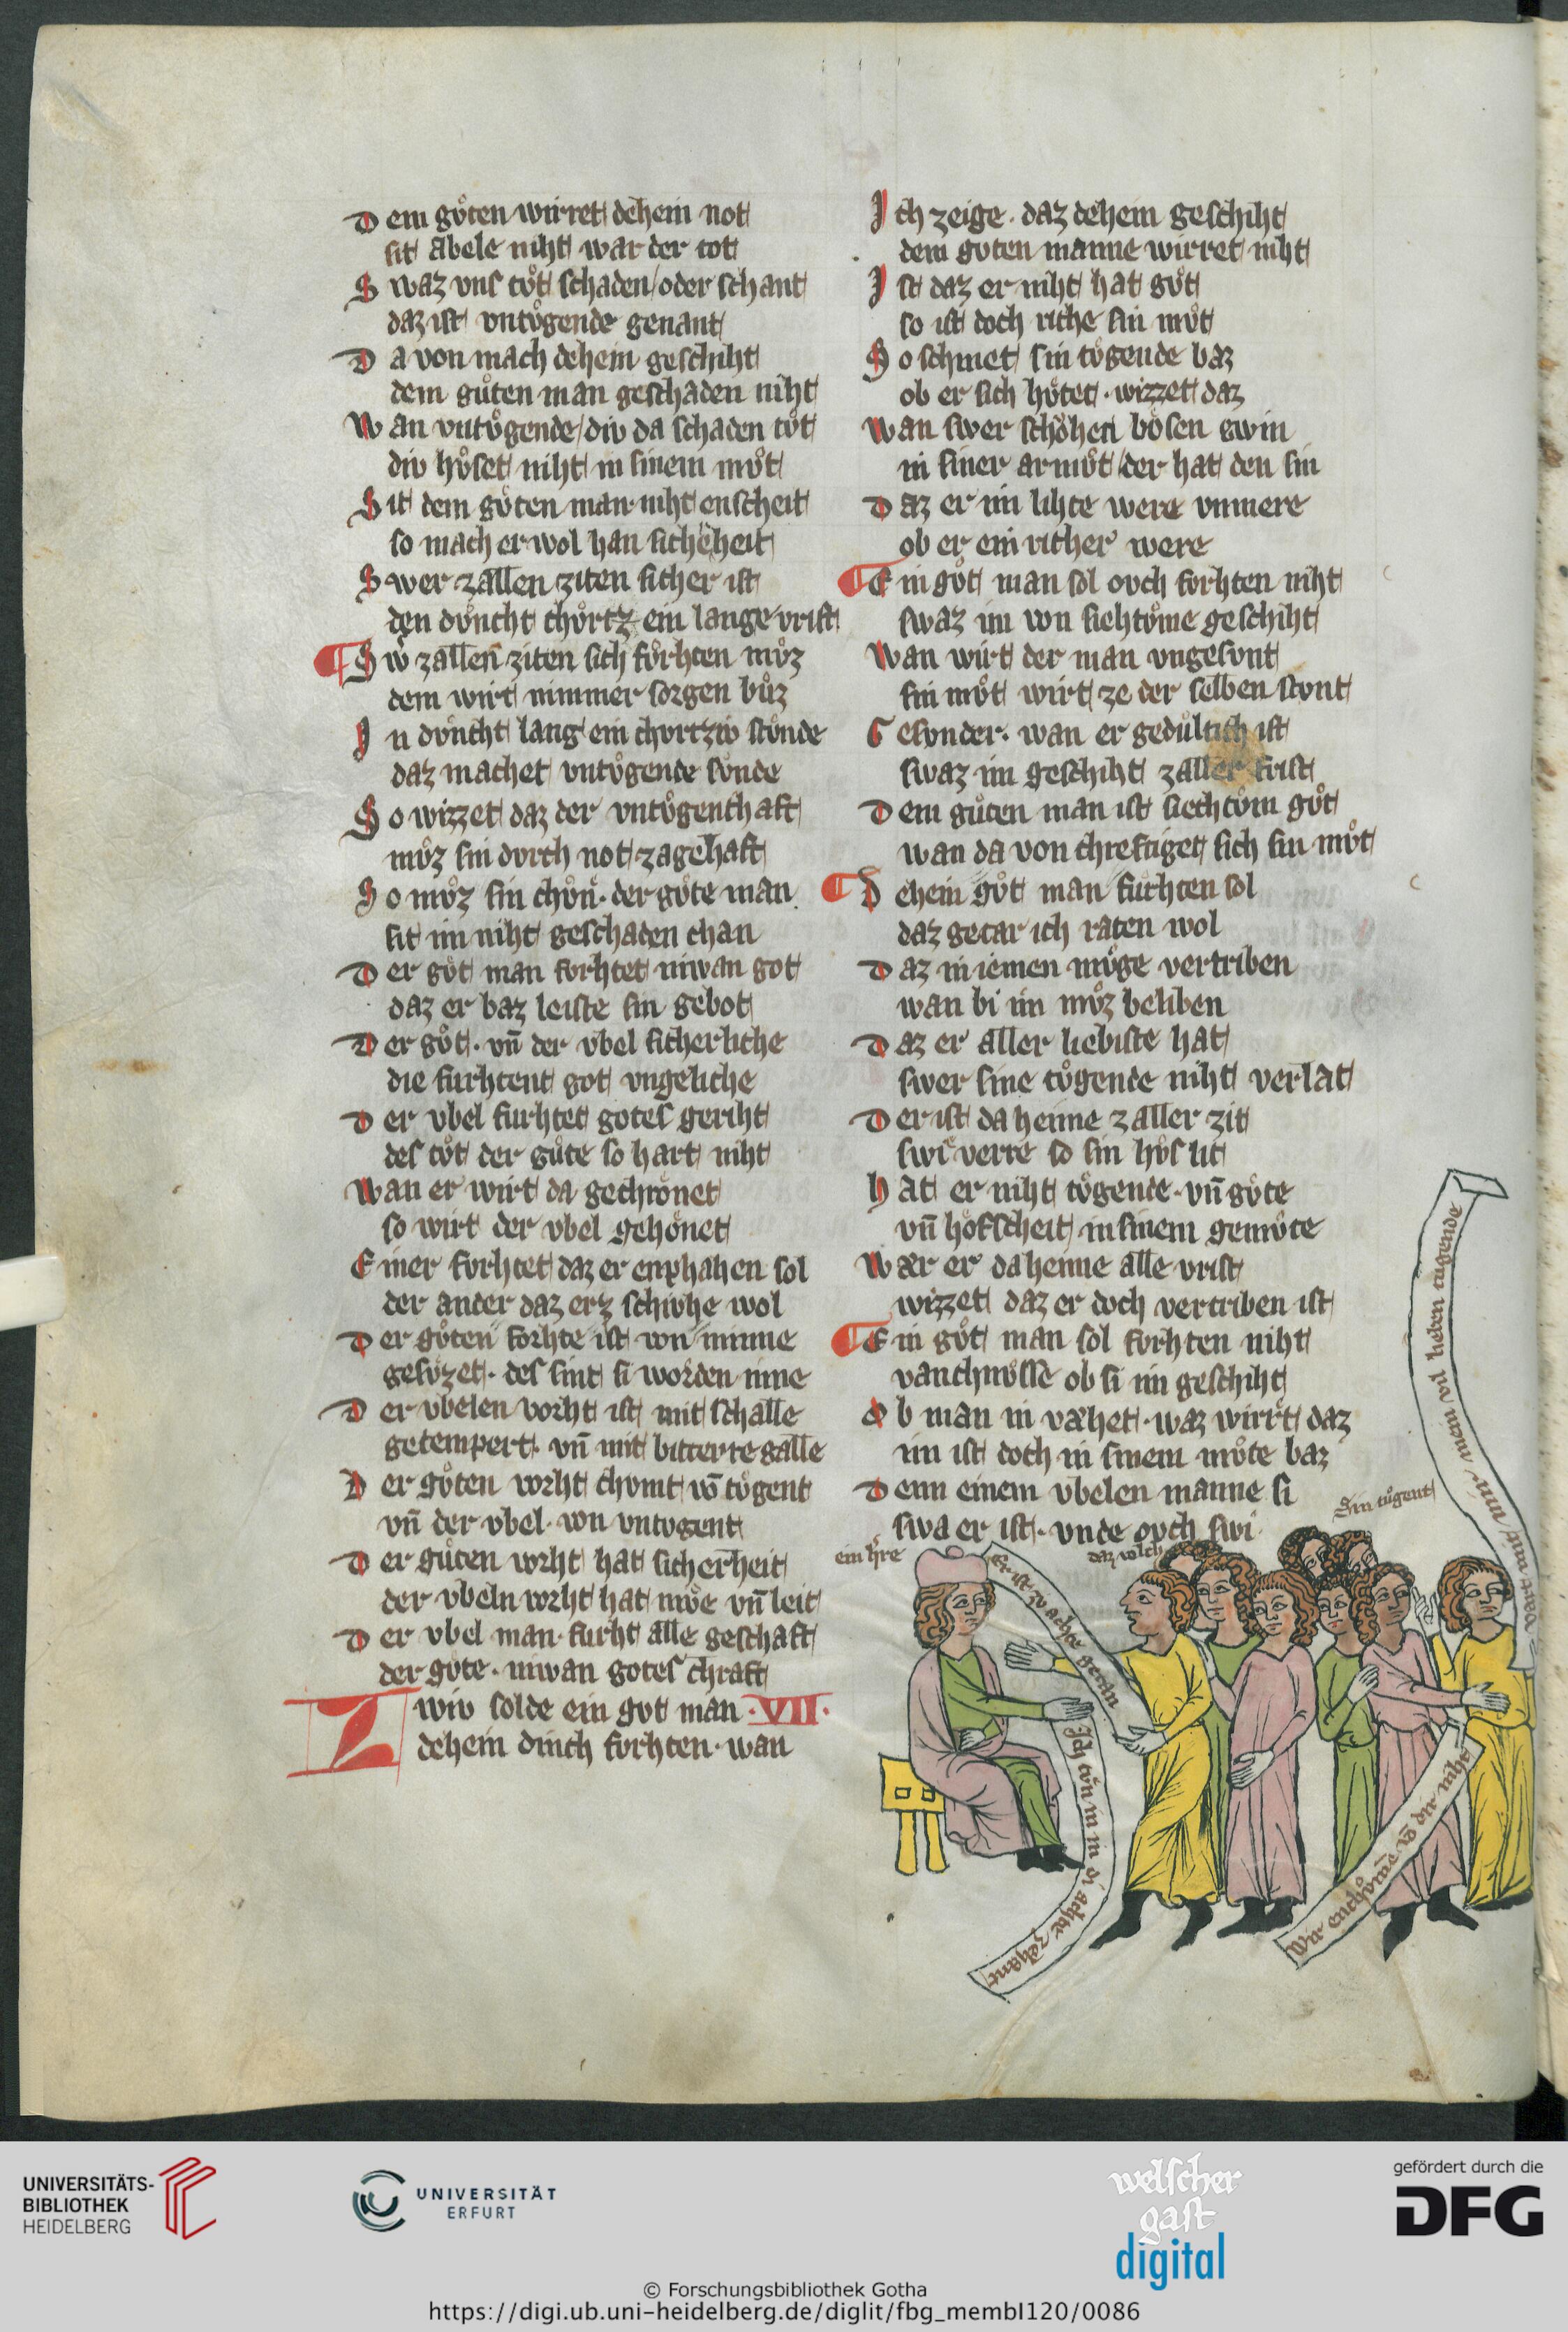 D em gůten wirret dehein not
sit abele niht war der tot
S waz vns tůt schaden/oder schant
daz ist vntůgende genant
D a von mach dehein geschiht
dem gůten man geschaden niht
W an vntůgende/div da schaden tůt
div hůset niht in sinem můt
S it dem gůten man niht enscheit
so mach er wol han sicherheit
S wer zallen ziten sicher ist
den důncht chůrtz ein lange vrist
S w zallen ziten sich fůrhten můz
dem wirt nimmer sorgen bůz
I n důncht lang ein chvrtziv stůnde
daz machet vntůgende sůnde
S o wizzet daz der vntůgenthaft
můz sin dvrch not zagehaft
S o můz sin chůn. der gůte man.
sit im niht geschaden chan
D er gůt man forhtet niwan got
daz er baz leiste sin gebot
D er gůt. vn̄ der vbel sicherliche
die furhtent got vngeliche
D er vbel furhtet gotes geriht
des tůt der gůte so hart niht
W an er wirt da gechrőnet
so wirt der vbel gehőnet
E iner fvrhtet daz er enphahen sol
der ander daz erz schivhe wol
D er gůten forhte ist von minne
gesůzet. des sint si worden inne
D er vbelen vorht ist mit schalle
getempert. vn̄ mit bitterre galle
D er gůten vorht chvmt vō tůgent
vn̄ der vbel. von vntvgent
D er gůten vorht hat sicherheit
der vbeln vorht hat můe vn̄ leit
D er vbel man furht alle geschaft
der gůte. niwan gotes chraft
Z wiv solde ein gvt man .VII.
dehein dinch fvrhten. wan
I ch zeige. daz dehein geschiht
dem gvten manne wirret niht
I st daz er niht hat gůt
so ist doch riche sin můt
S o schinet sin tůgende baz
ob er sich hůtet. wizzet daz
W an swer schőhen bősen gwin
in siner armůt/der hat den sin
D az er im lihte were vnmere
ob er ein richer were
E in gůt man sol ovch fvrhten niht
swaz im von siehtůme geschiht
W an wirt der man vngesvnt
sin můt wirt ze der selben stvnt
G esvnder. wan er gedůltich ist
swaz im geschiht zaller frist
D em gůten man ist siechtům gůt
wan da von chreftiget sich sin můt
D ehein gůt man fůrhten sol
daz getar ich raten wol
D az in iemen můge vertriben
wan bi im můz beliben
D az er aller liebiste hat
swer sine tůgende niht verlat
D er ist da heime zaller zit
swi verre so sin hůs lit
H at er niht tůgende. vn̄ gůte
vn̄ hőfscheit in sinem gemůte
W ær er da heime alle vrist
wizzet daz er doch vertriben ist
E in gůt man sol fvrhten niht
vanchnůsse ob si im geschiht
O b man in væhet. waz wirret daz
im ist doch in sinem můte baz
D enn einem vbelen manne si
swa er ist. vnde ovch swi
ein h̄re
daz volch
Sin tůgent
Er ist zv achte getan
Ich tůn in in di achte zehant
Wir enchvmē vō dir niht
vart mit mir mein vil lieben tugende
UNIVERSITÄTS-
BIBLIOTHEK
HEIDELBERG
UNIVERSITÄT
ERFURT
welscher
gast
digital
gefördert durch die
DFG
© Forschungsbibliothek Gotha
https://digi.ub.uni-heidelberg.de/diglit/fbg_membI120/0086